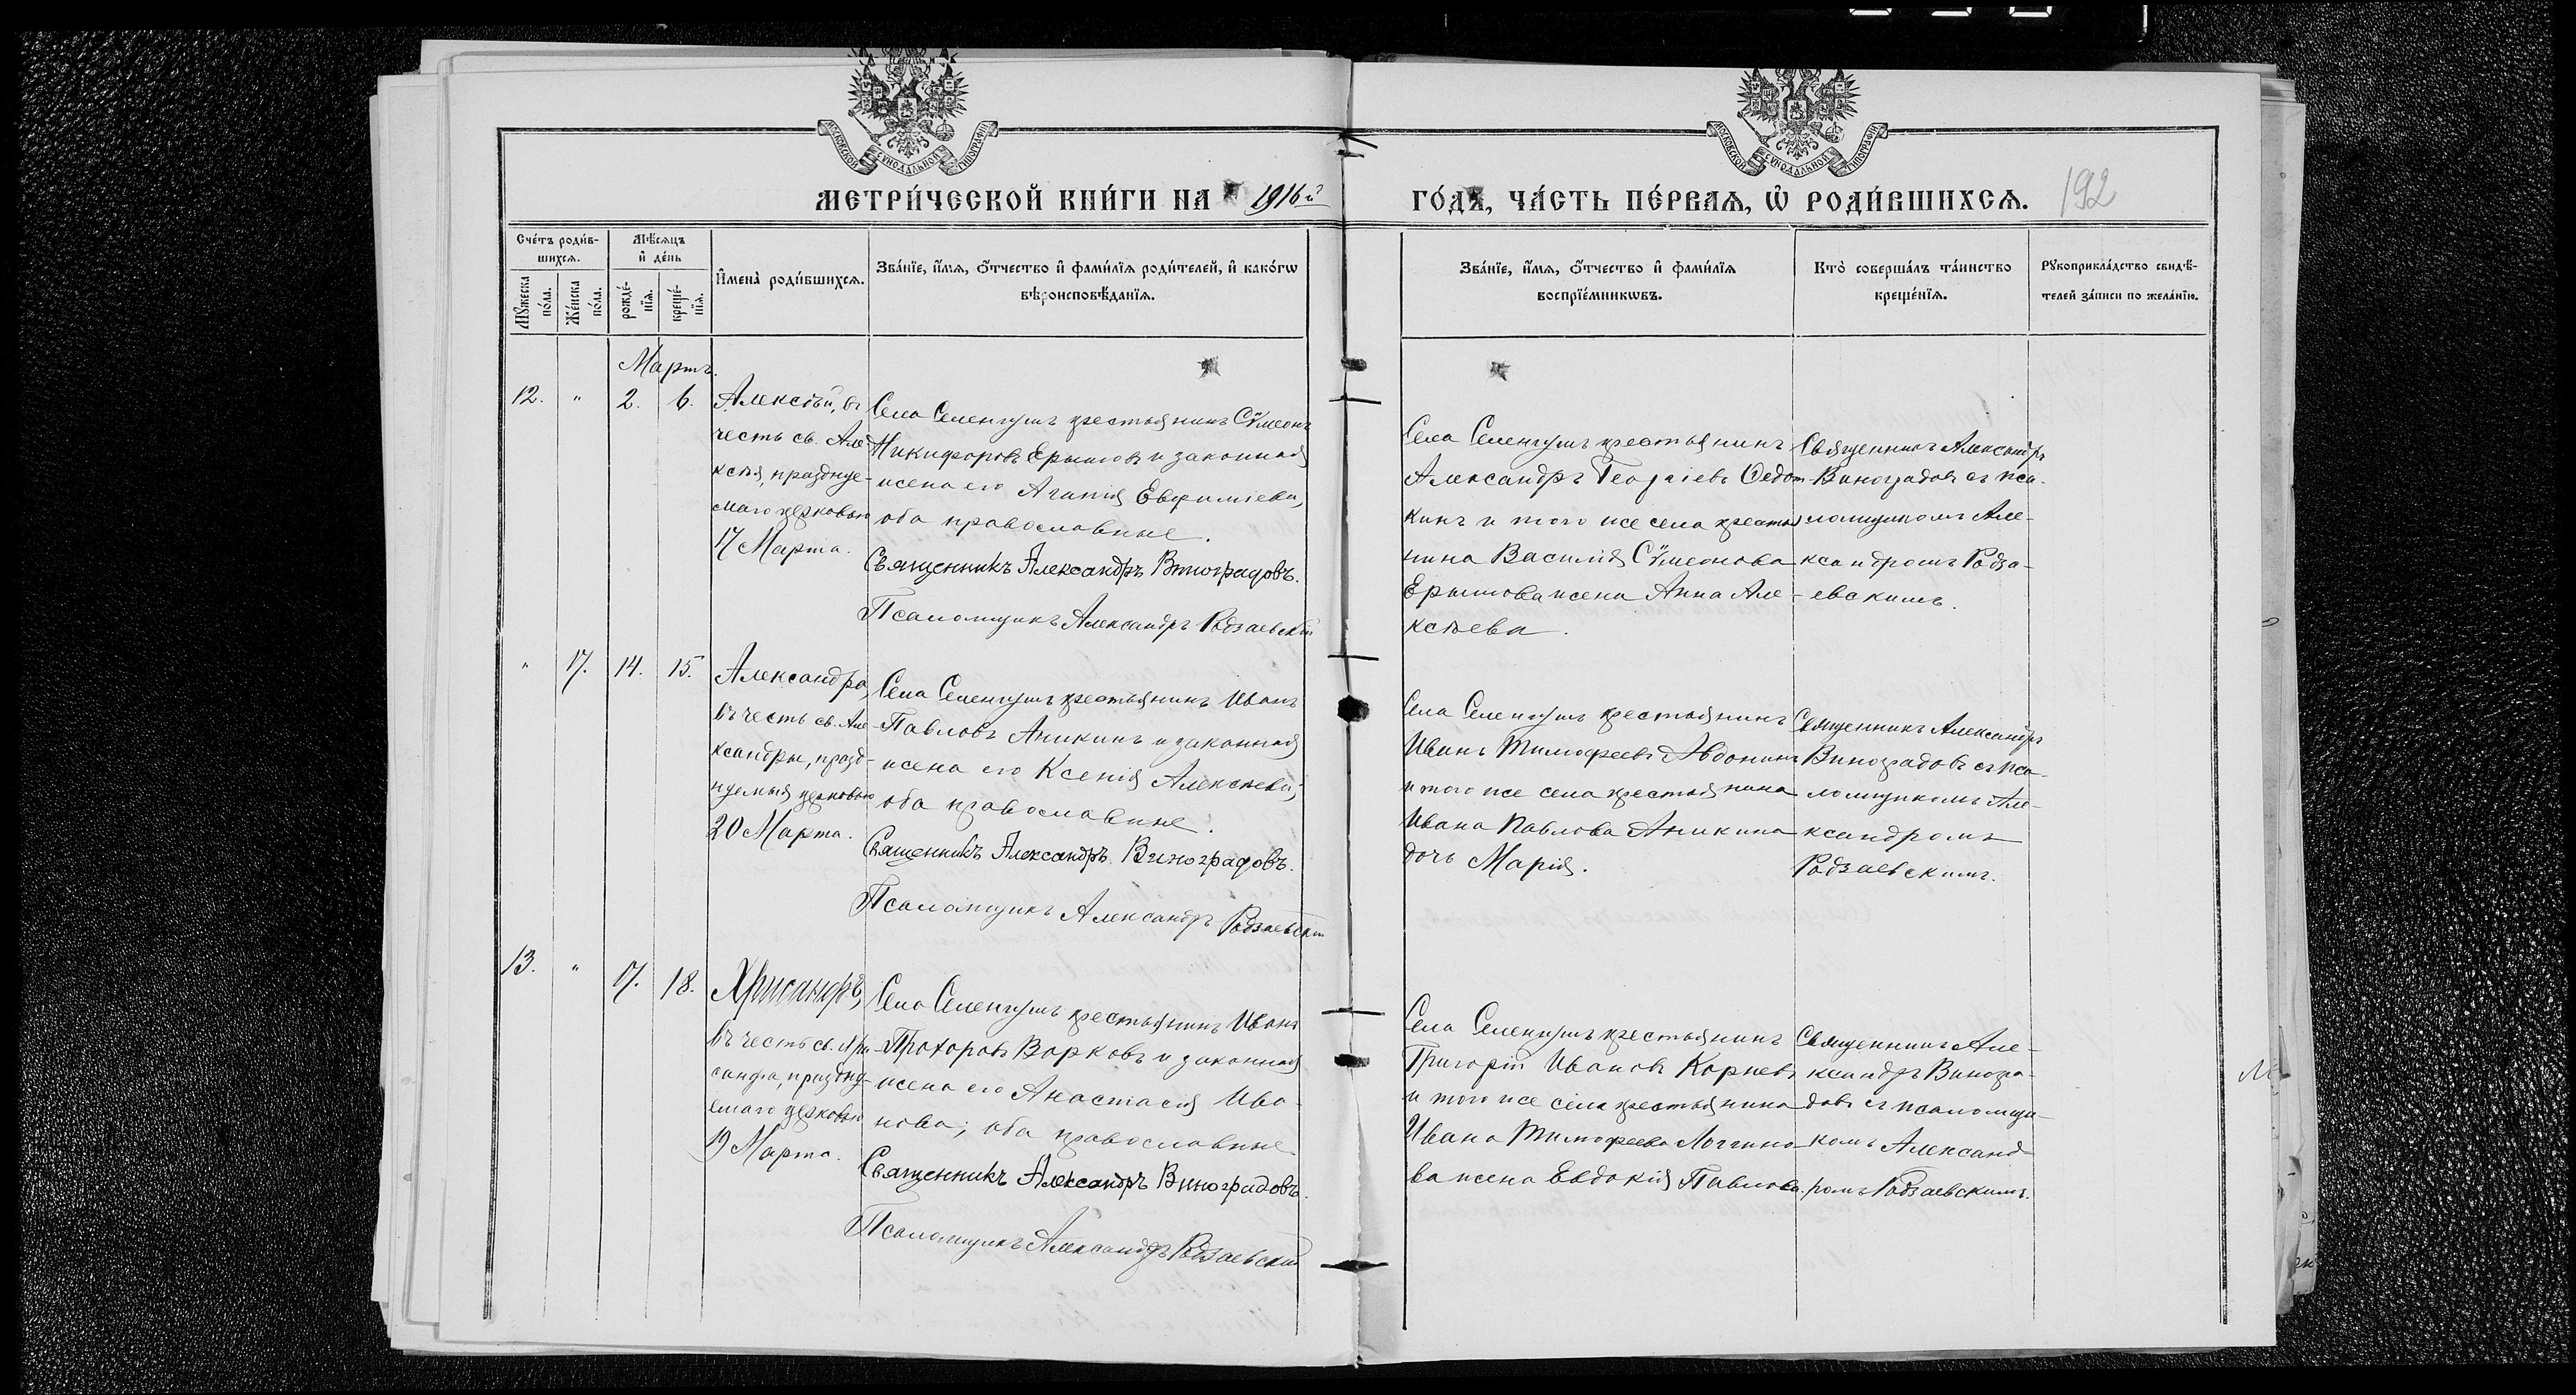 МОСКОВСКОЙ СѴНОДАЛЬНОЙ ТИПОГРАФІИ
МОСКОВСКОЙ СѴНОДАЛЬНОЙ ТИПОГРАФІИ
МЕТРИ́ЧЕСКОЙ КНИ́ГИ НА 1916й
ГО́ДЪ, ЧА́СТЬ ПЕ́РВАѦ, Ѡ҆ РОДИ́ВШИХСѦ.
192
Сче́тъ роди́в-
шихсѧ.
Мꙋ́жеска
по́ла.
Же́нска
по́ла.
Мѣ́сѧцъ
и҆ де́нь
рожде́-
нїѧ.
креще́-
нїѧ.
И҆мена̀ роди́вшихсѧ.
Зва́нїе, и҆́мѧ, ѻ҆́тчество и҆ фами́лїѧ роди́телей, и҆ како́гѡ
вѣроисповѣ́данїѧ.
Зва́нїе, и҆́мѧ, ѻ҆́тчество и҆ фами́лїѧ
воспрїе́мникѡвъ.
Кто̀ соверша́лъ та́инство
креще́нїѧ.
Рꙋкоприкла́дство свидѣ́-
телей за́писи по жела́нїю.
Мартъ.
12.
"
2.
6.
Алексѣй, въ
честь св. Але-
ксѣя, праздну-
емаго церковью
17 Марта.
Села Селенгушъ крестьянинъ Сѵмеонъ
Никифоровъ Ерымовъ и законная
жена его Агапія Евфиміева,
оба православные.
Священникъ Александръ Виноградовъ.
Псаломщикъ Александръ Родзаевскій
Села Селенгушъ крестьянинъ
Александръ Георгіевъ Ѳедот-
кинъ и того же села крестья-
нина Василія Сѵмеонова
Ерымова жена Анна Але-
ксѣева.
Священникъ Александръ
Виноградовъ съ пса-
ломщикомъ Але-
ксандромъ Родза-
евскимъ.
"
17.
14.
15.
Александра,
въ честь св. Але-
ксандры, празд-
нуемыя церковью
20 Марта.
Села Селенгушъ крестьянинъ Иванъ
Павловъ Аникинъ и законная
жена его Ксенія Алексѣева;
оба православные.
Священникъ Александръ Виноградовъ.
Псаломщикъ Александръ Родзаевскій
Села Селенгушъ крестьянинъ
Иванъ Тимофеевъ Авдонинъ
и того же села крестьянина
Ивана Павлова Аникина
дочь Марія.
Священникъ Александръ
Виноградовъ съ пса-
ломщикомъ Але-
ксандромъ
Родзаевскимъ.
13.
"
17.
18.
Хрисанфъ,
въ честь св. Хри-
санфа, праздну-
емаго церковью
19 Марта.
Села Селенгушъ крестьянинъ Иванъ
Прохоровъ Борковъ и законная
жена его Анастасія Ива-
нова; оба православные
Священникъ Александръ Виноградовъ.
Псаломщикъ Александръ Родзаевскій
Села Селенгушъ крестьянинъ
Григорій Ивановъ Корневъ
и того же села крестьянина
Ивана Тимофеева Логгино-
ва жена Евдокія Павлова.
Священникъ Але-
ксандръ Виногра-
довъ съ псаломщи-
комъ Александ-
ромъ Родзаевскимъ.